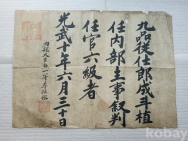 九品從仕郎成斗植
任內部主事敍判
任官六級者
光武十年六月三十日
KOBAY